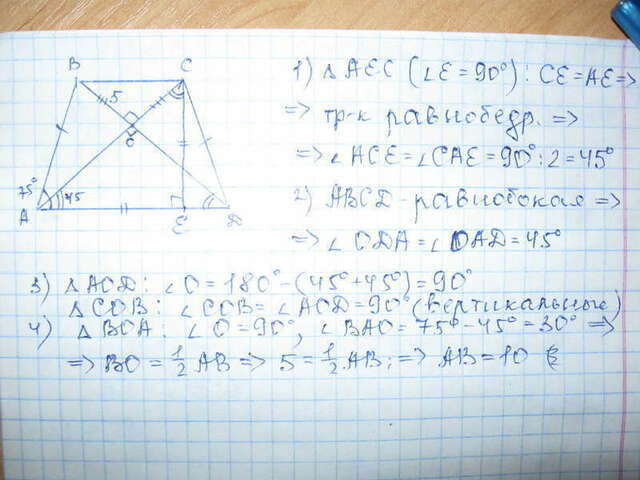 B C
5
O
75°
45
A E D
1) Δ AEC (∠E = 90°): CE = AE =>
=> тр-к равнобедр. =>
=> ∠ACE = ∠CAE = 90° : 2 = 45°
2) ABCD - равнобокая =>
=> ∠ODA = ∠OAD = 45°
3) Δ AOD: ∠O = 180° - (45° + 45°) = 90°
Δ COB: ∠COB = ∠AOD = 90° (вертикальные)
4) Δ BOA: ∠O = 90°, ∠BAO = 75° - 45° = 30° =>
=> BO = 1/2 AB => 5 = 1/2 AB; => AB = 10